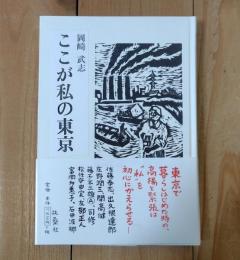 岡崎 武志
ここが私の東京
東京で
暮らしはじめた時の、
高揚と緊張は
“私”を
初心にかえらせる!
佐藤泰志、出久根達郎
庄野潤三、開高健
藤子不二雄Ⓐ、司修、
松任谷由実、友部正人
富岡多惠子、石田波郷
扶桑社